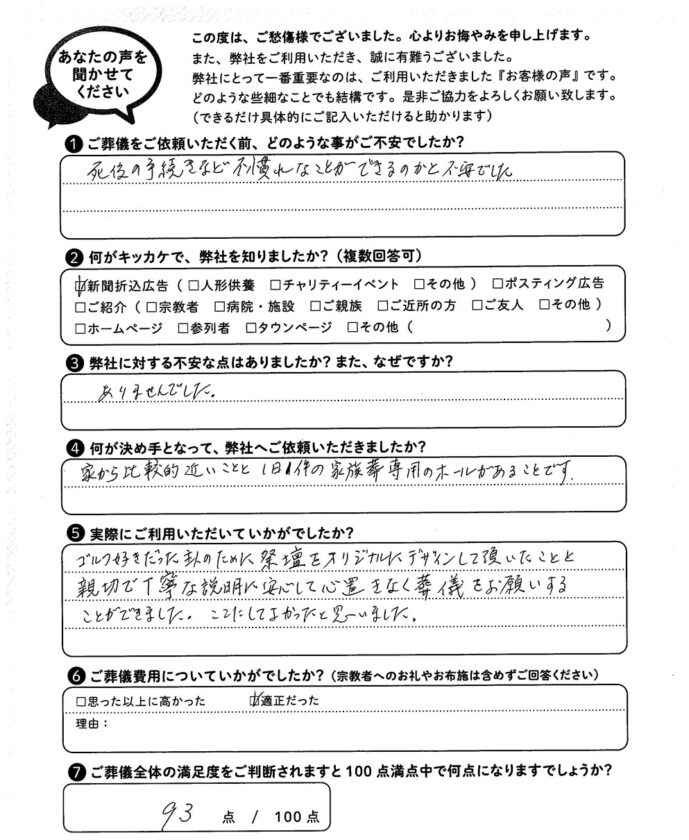 あなたの声を
聞かせて
ください
この度は、ご愁傷様でございました。心よりお悔やみを申し上げます。
また、弊社をご利用いただき、誠に有難うございました。
弊社にとって一番重要なのは、ご利用いただきました『お客様の声』です。
どのような些細なことでも結構です。是非ご協力をよろしくお願い致します。
(できるだけ具体的にご記入いただけると助かります)
❶ ご葬儀をご依頼いただく前、どのような事がご不安でしたか?
死後の手続きなど不慣れなことができるのかと不安でした
❷ 何がキッカケで、弊社を知りましたか?(複数回答可)
☑新聞折込広告 ( □人形供養 □チャリティーイベント □その他 ) □ポスティング広告
□ご紹介 ( □宗教者 □病院・施設 □ご親族 □ご近所の方 □ご友人 □その他 )
□ホームページ □参列者 □タウンページ □その他 ( )
❸ 弊社に対する不安な点はありましたか? また、なぜですか?
ありませんでした。
❹ 何が決め手となって、弊社へご依頼いただきましたか?
家から比較的近いことと1日1件の家族葬専用のホールがあることです。
❺ 実際にご利用いただいていかがでしたか?
ゴルフ好きだった主人のために祭壇をオリジナルにデザインして頂いたことと
親切で丁寧な説明に安心して心置きなく葬儀をお願いする
ことができました。ここにしてよかったと思いました。
❻ ご葬儀費用についていかがでしたか?(宗教者へのお礼やお布施は含めずご回答ください)
□思った以上に高かった ☑適正だった
理由:
❼ ご葬儀全体の満足度をご判断されますと100点満点中で何点になりますでしょうか?
93 点 / 100点